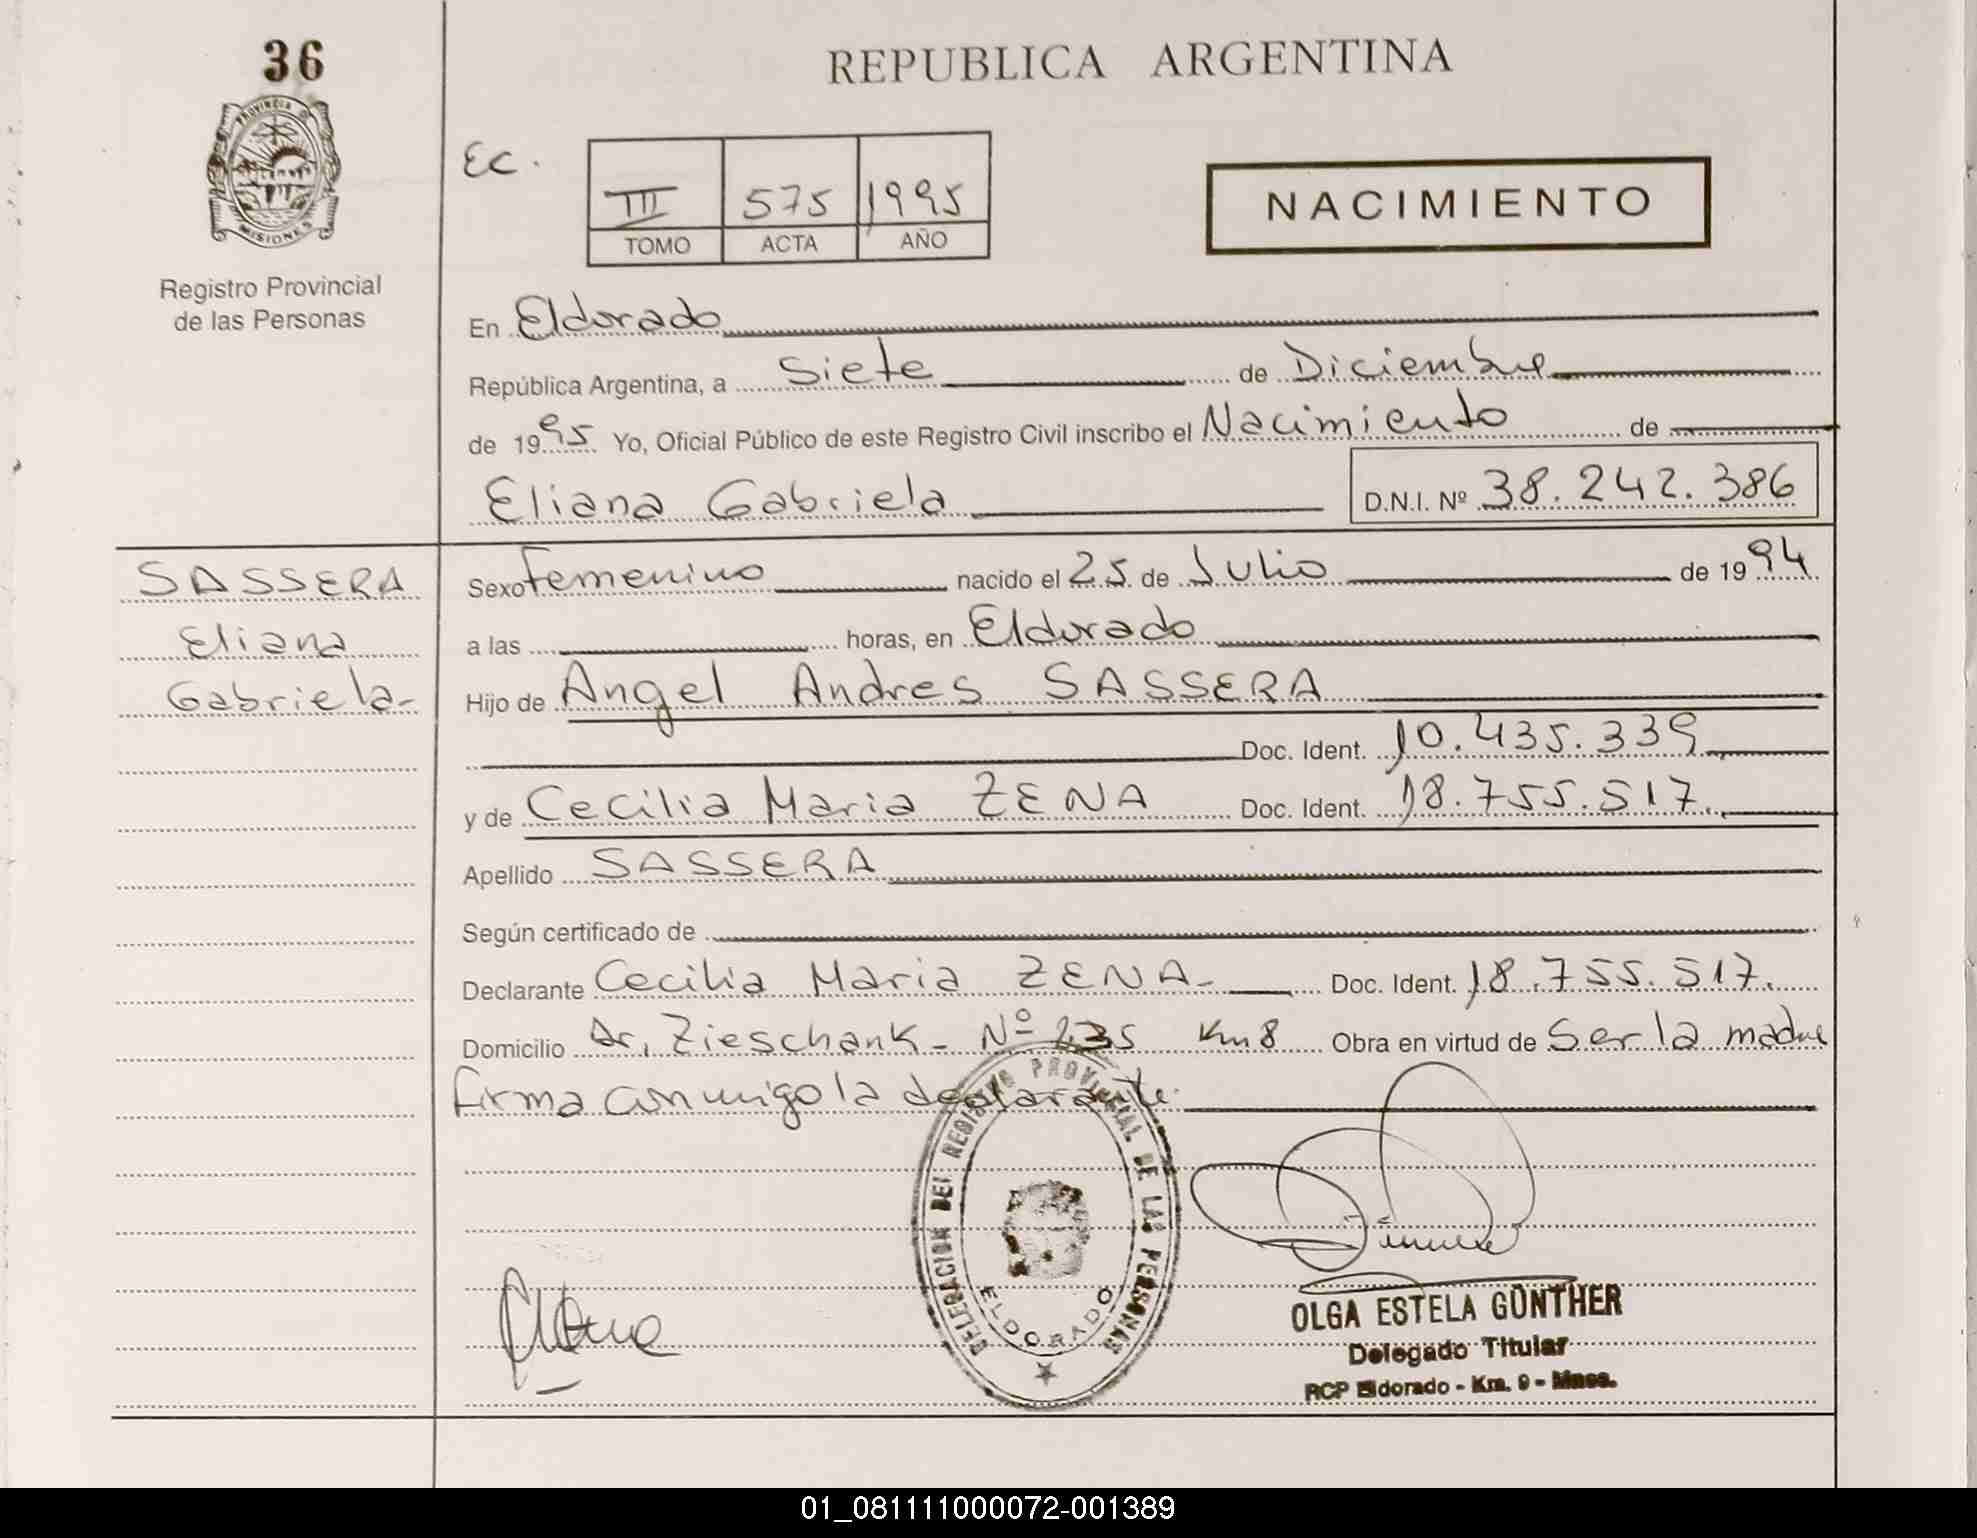 36
REPUBLICA ARGENTINA
PROVINCIA DE
MISIONES
Registro Provincial
de las Personas
Ec.
III 575 1995
TOMO ACTA AÑO
NACIMIENTO
En Eldorado
República Argentina, a Siete de Diciembre
de 1995 Yo, Oficial Público de este Registro Civil inscribo el Nacimiento de
Eliana Gabriela D.N.I. Nº 38.242.386
SASSERA
Eliana
Gabriela-
Sexo Femenino nacido el 25 de Julio de 1994
a las horas, en Eldorado
Hijo de Angel Andres SASSERA
Doc. Ident. 10.435.339
y de Cecilia Maria ZENA Doc. Ident. 18.755.517.
Apellido SASSERA
Según certificado de
Declarante Cecilia Maria ZENA- Doc. Ident. 18.755.517.
Domicilio Dr. Zieschank- Nº 235 Km 8 Obra en virtud de Ser la madre
firma conmigo la declarante.
DELEGACION DEL REGISTRO PROVINCIAL DE LAS PERSONAS
ELDORADO
OLGA ESTELA GÜNTHER
Delegado Titular
RCP Eldorado - Km. 9 - Mnes.
01_081111000072-001389